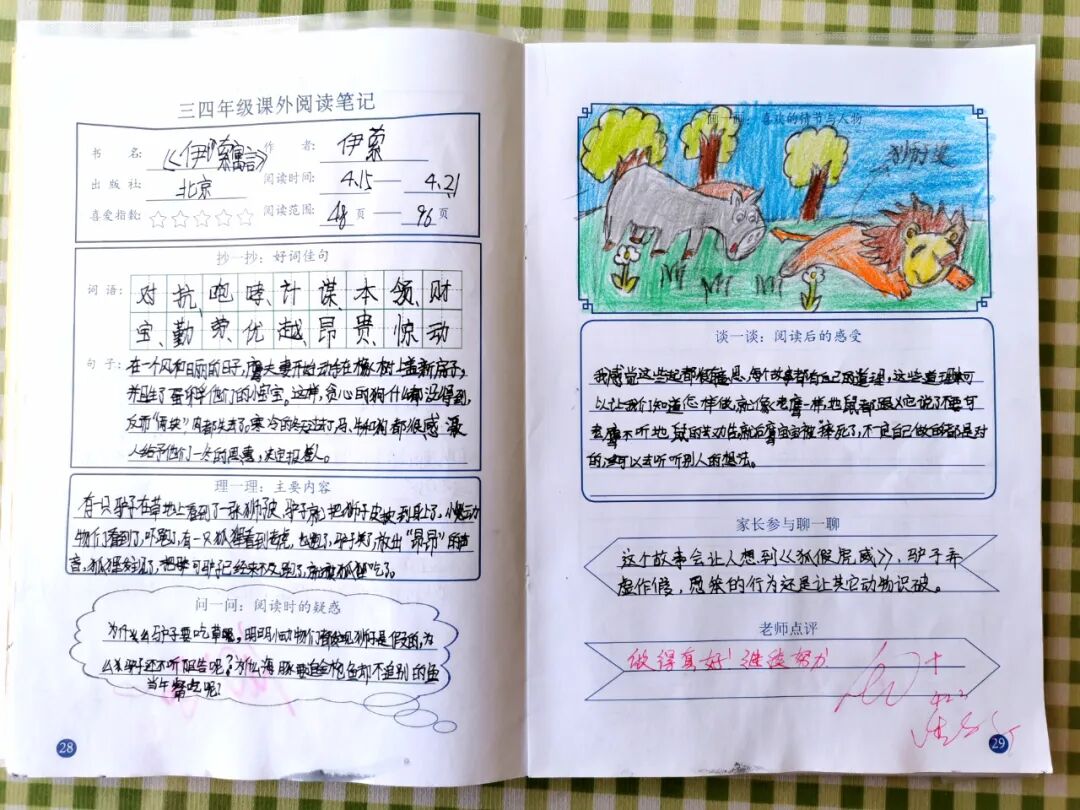 三四年级课外阅读笔记
书名:《伊索寓言》 作者: 伊索
出版社: 北京 阅读时间: 4.15 — 4.21
喜爱指数: ☆☆☆☆☆ 阅读范围: 48页 — 96页
抄一抄:好词佳句
词语: 对抗、咆哮、计谋、本领、财
宝、勤劳、优越、昂贵、惊动
句子: 在一个风和日丽的日子,鹰夫妻开始动身在橡树上盖新房子,
并且生了蛋孵他们的小宝宝。这样,贪心的狗什么都没得到,
反而 肉都失去了。寒冷的冬天过去了,马、牛和狗都很感激
人给予他们的恩惠,决定报答人。
理一理:主要内容
有一只驴子在草地上看到了一张狮子皮,驴子就把狮子皮披到身上了。小动
物们看到了,吓跑了,有一只狐狸看到老虎,也跑了,驴子笑了,放出“昂昂”的声
音,狐狸 了,把 可驴子已经来不及跑了,就被狐狸吃了。
问一问:阅读时的疑惑
为什么驴子要吃草呢,明明小动物们都发现狮子是假的,为
么驴子还不听 呢?为什么海豚要追 鱼却不追别的鱼
当午餐吃呢?
28
画一画:喜欢的情节与人物
狮子皮
谈一谈:阅读后的感受
我感觉这些 都很有意思,每个故事都有自己的道理,这些道理可
以让我们知道怎样做,就像老鹰一样,地鼠都跟它说了不要
老鹰不听地鼠的劝告,就 鹰宝宝被摔死了,不是自己做的都是对
的,还可以去听听别人的想法。
家长参与聊一聊
这个故事会让人想到《狐假虎威》,驴子弄
虚作假,愚笨的行为还是让其它动物识破。
老师点评
做得真好!继续努力
29